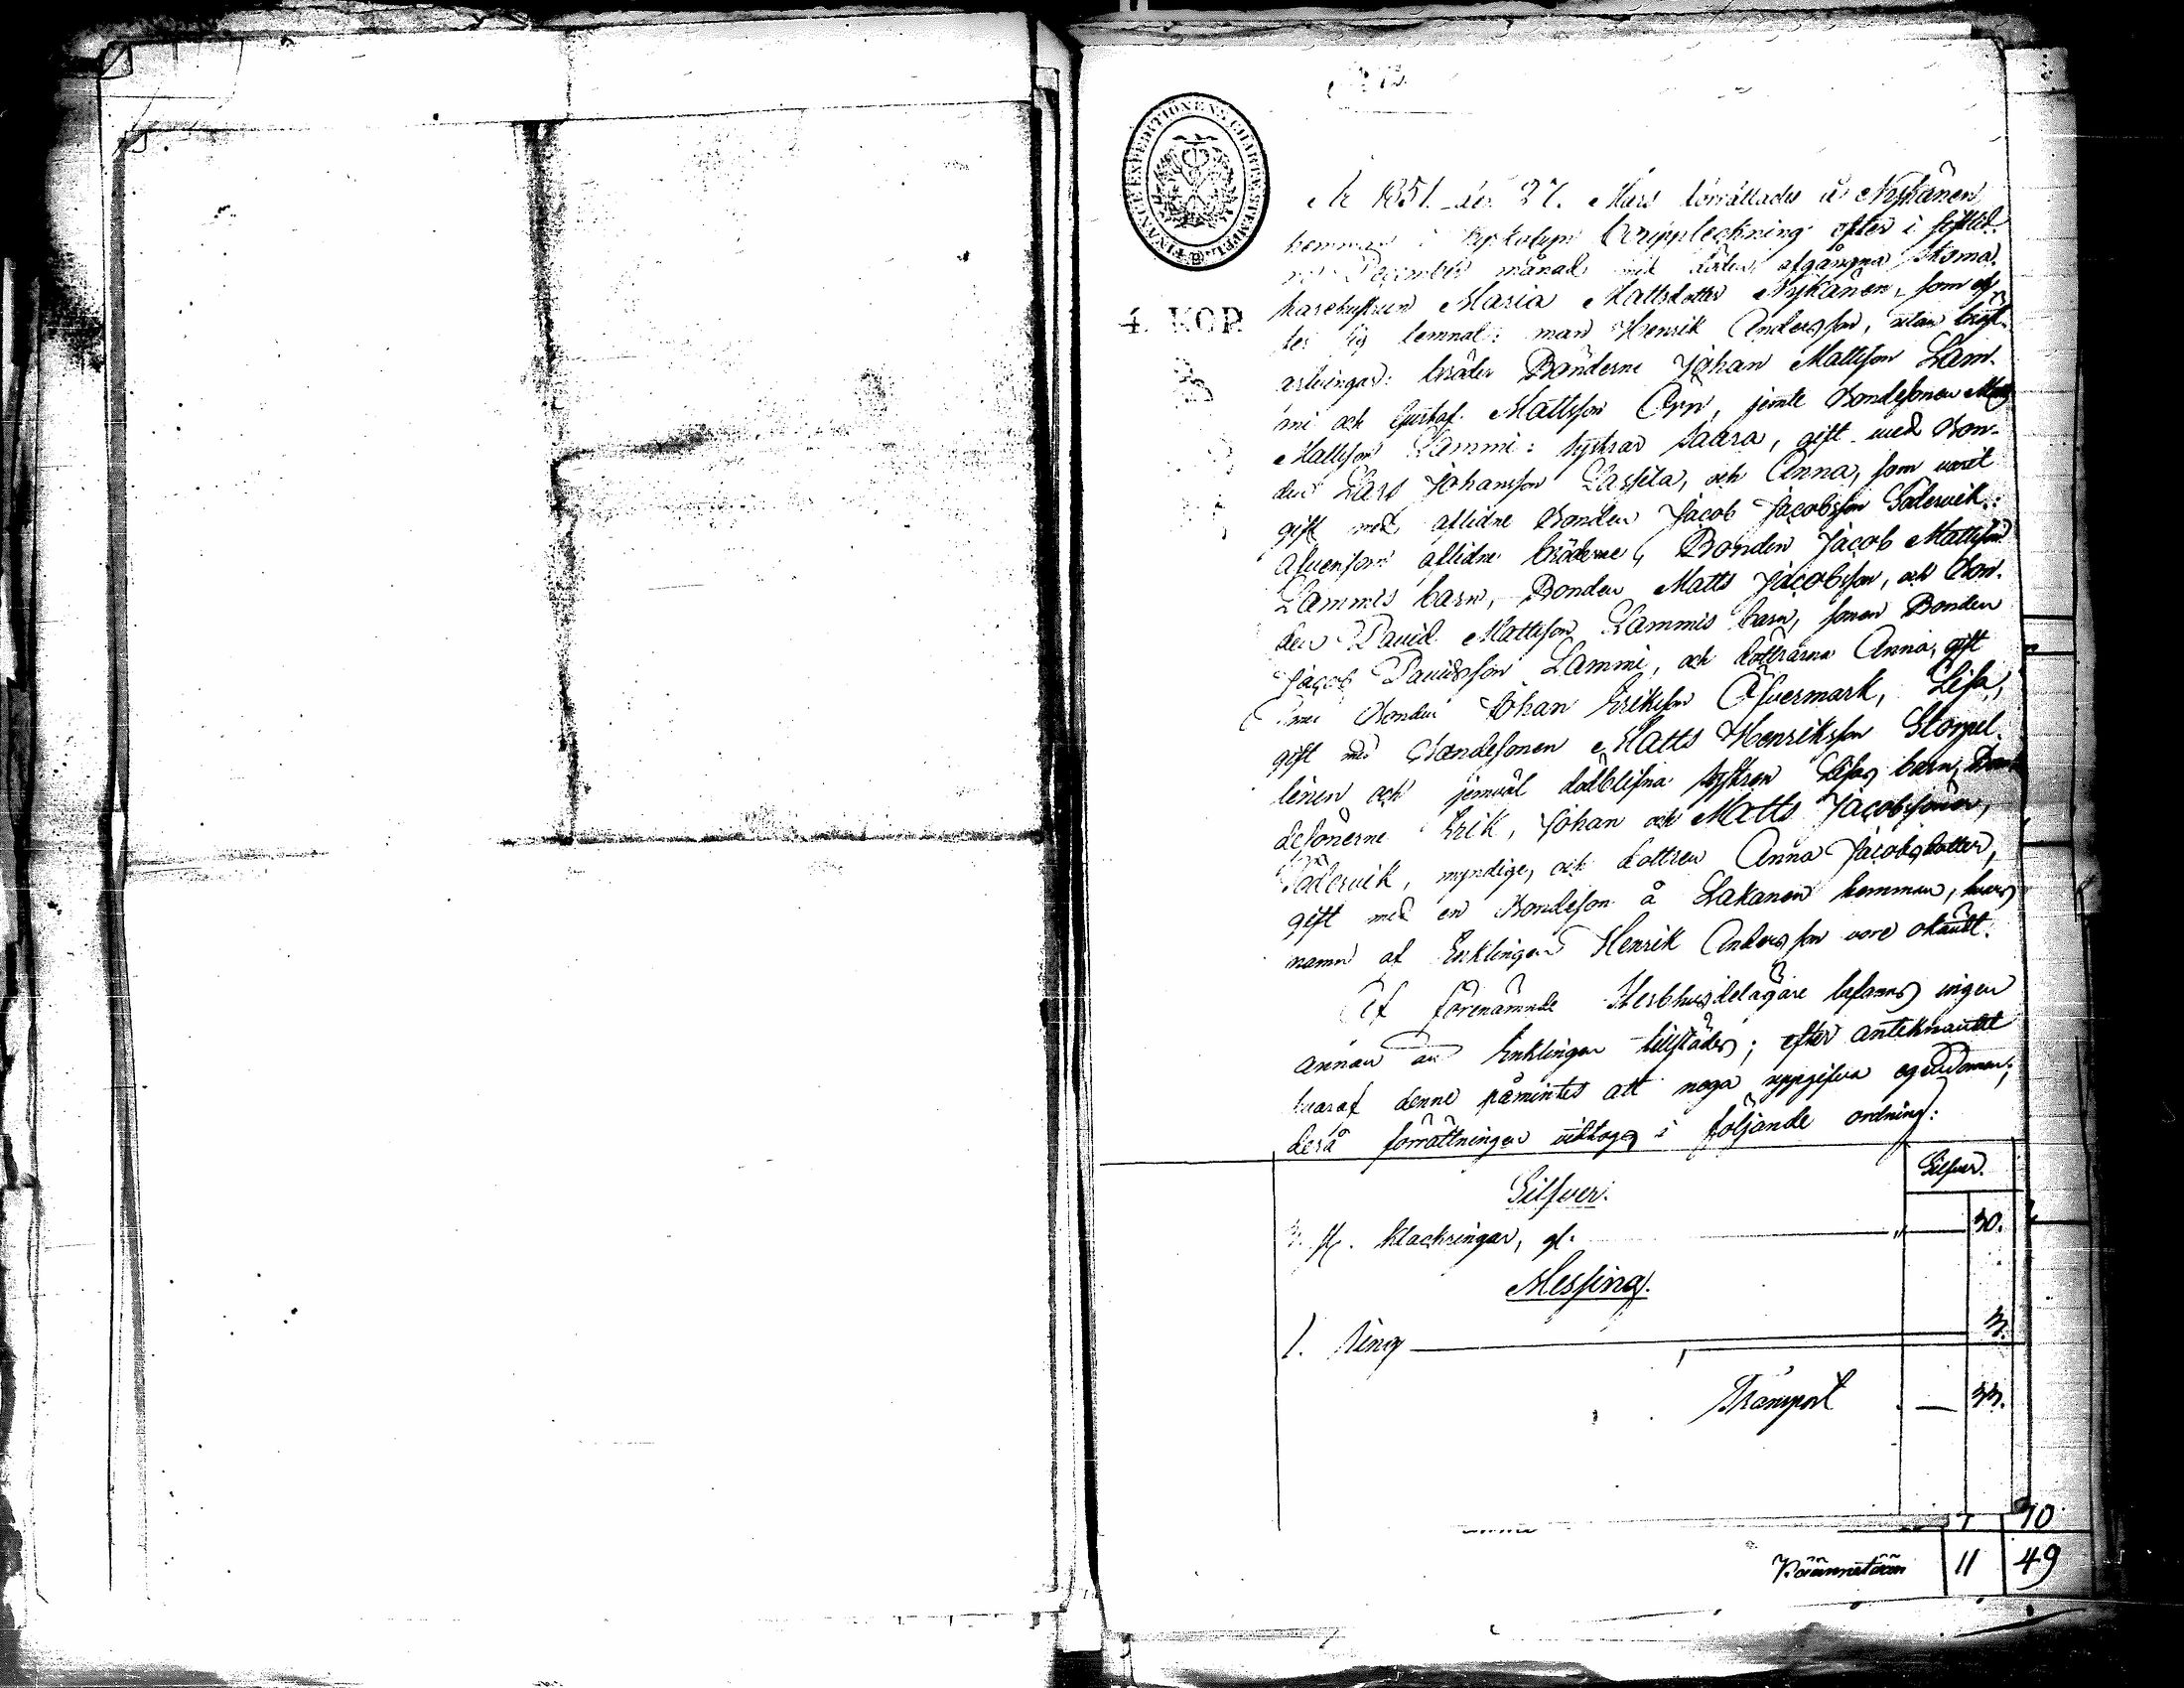 FINANCE EXPEDITIONENS CHARTÆ STEMPPEL
4 KOP
År 1851 den 27. Mars förrättades å Nykänen
hemman i Kyrkobyn Bouppteckning efter i sistled.
ne December månad med döden afgångna Skoma.
karehustrun Maria Mattsdotter Nykänen, som ef
ter sig lemnat: man Henrik Andersson, utan bröst.
arfvingar: bröder Bönderne Johan Mattsson Lam.
mi och Gustaf Mattsson Örn, jemte Bondesonen Matts
Mattsson Lammi: systrar Saara, gift med Bon-
den Lars Johansson Lassila, och Anna, som varit
gift med aflidne Bonden Jacob Jacobsson Södervik:
äfvensom aflidne bröderne, Bonden Jacob Mattsson
Lammis barn, Bonden Matts Jacobsson, och Bon.
den David Mattsson Lammis barn, sonen Bonden
Jacob Davidsson Lammi, och döttrarna Anna, gift
med Bonden Johan Eriksson Öfvermark, Lisa,
gift med Bondesonen Matts Henriksson
och jemväl dödblifna systren Lisas barn, Bon
desönerne Erik, Johan och Matts Jacobssöner,
Södervik, myndige, och dottren Anna Jacobsdotter,
gift med en Bondeson å Lakanen hemman, hvars
namn af Enklingen Henrik Andersson vore okändt.
Af förenämnde Sterbhusdelägare befanns ingen
annan än Enklingen tillstädes; efter anteknandet
hvaraf denne påmintes att noga uppgifva egendomen;
derå förrättningen vidtogs i följande ordning:
Silfver.
Silfver.
3. st. klackringar, gl. " 30.
Messing.
1. Ring 3.
Transport — 33.
10
Käännetään 11 49